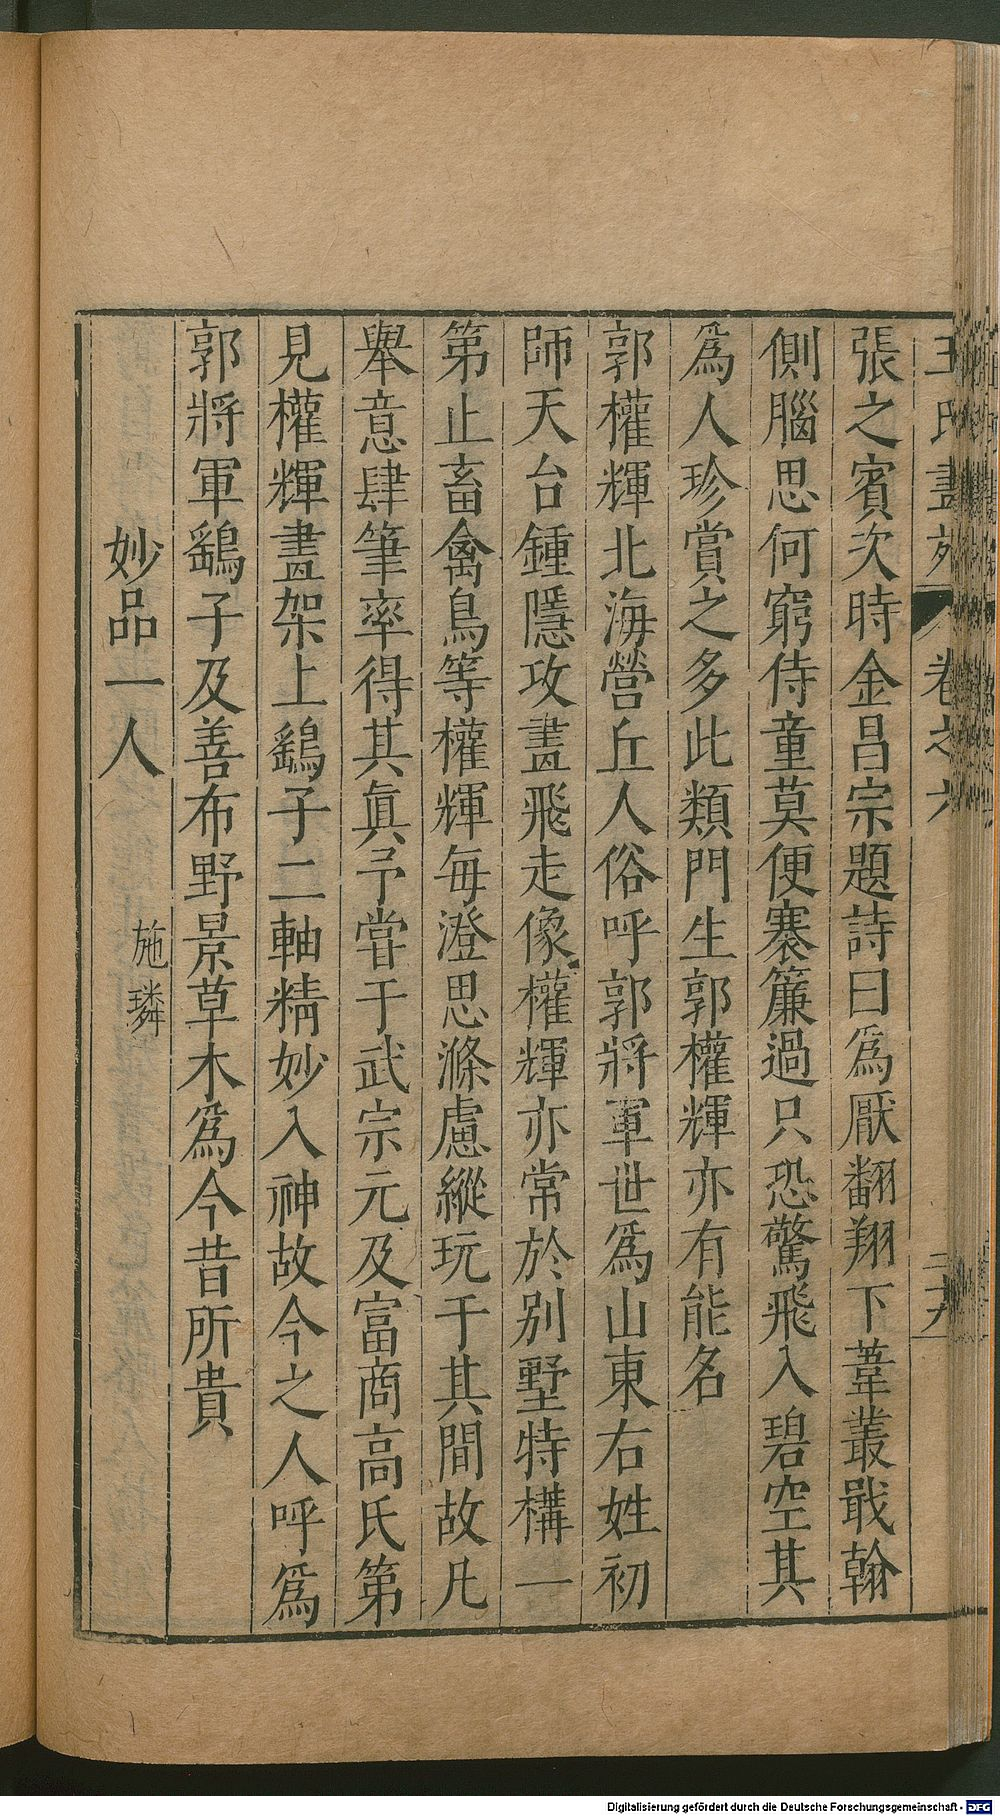 王氏畫苑 卷之六 二十六
張之賓次時金昌宗題詩曰爲厭翻翔下葦叢戢翰
側腦思何窮侍童莫便褰簾過只恐驚飛入碧空其
爲人珍賞之多此類門生郭權輝亦有能名
郭權輝北海營丘人俗呼郭將軍世爲山東右姓初
師天台鍾隱攻畫飛走像權輝亦常於別墅特構一
第止畜禽鳥等權輝每澄思滌慮縱玩于其間故凡
舉意肆筆率得其眞予甞于武宗元及富商高氏第
見權輝畫架上鷂子二軸精妙入神故今之人呼爲
郭將軍鷂子及善布野景草木爲今昔所貴
妙品一人
施璘
Digitalisierung gefördert durch die Deutsche Forschungsgemeinschaft - DFG